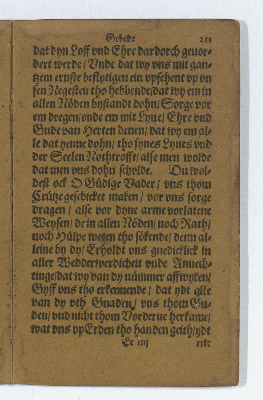 Gebede
dat dyn Loff vnd Ehre dardorch geuor-
dert werde / Vnde dat wy vns mit gan-
tzem ernste beflytigen ein vpsehent vp vn
sen Negesten tho hebbende / dat wy em in
allen Nöden bystandt dohn / Sorge vor
em dregen / vnde em mit Lyue / Ehre vnd
Gude van Herten denen / dat wy em al-
le dat yenne dohn / tho synes Lyues vnd
der Seelen Nothrofft / alse men wolde
dat men vns dohn scholde. Du wol-
dest ock O Güdige Vader / vns thom
Crütze geschicket maken / vor vns sorge
dragen / alse vor dyne arme vorlatene
Weysen / de in allen Nöden / noch Rath /
noch Hülpe weten tho sökende / denn al-
leine by dy / Erholdt vns guedichlick in
aller Wedderwerdicheit vnde Anuech-
tinge / dat wy van dy nümmer affwyken /
Gyff vns tho erkennende / dat ydt alle
van dy vth Gnaden / vns thom Gu-
den / vnd nicht thom Vorderue herkame /
wat vns vp Erden tho handen geith / ydt
Ee iiij